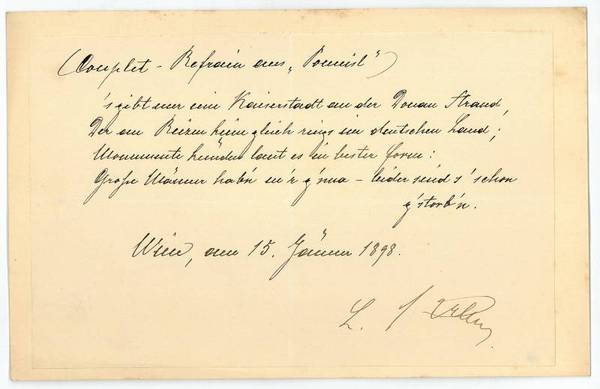 (Couplet - Refrain aus „Pomisl“)
's gibt nur eine Kaiserstadt an der Donau Strand,
Der an Reizen keine gleich rings im deutschen Land;
Monumente künden laut es in bester Form:
Große Männer hab'n m'r g'nua – leider sind s' schon
g'storb'n.
Wien, am 15. Jänner 1898.
L.